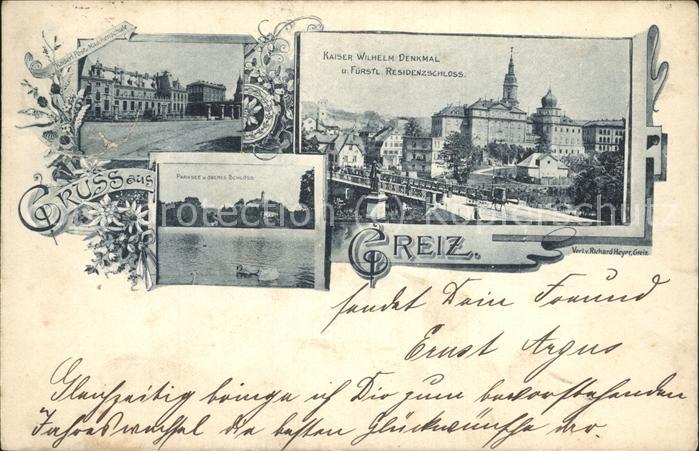 Kaiserl. Post u. Maschinenschule
KAISER WILHELM DENKMAL
U. FÜRSTL. RESIDENZSCHLOSS.
PARKSEE U. OBERES SCHLOSS
GRUSS aus
GREIZ.
Verl. v. Richard Heyer, Greiz
sendet Dein Freund
Ernst Argus
Gleichzeitig bringe ich Dir zum bevorstehenden
Jahreswechsel die besten Glückwünsche dar.